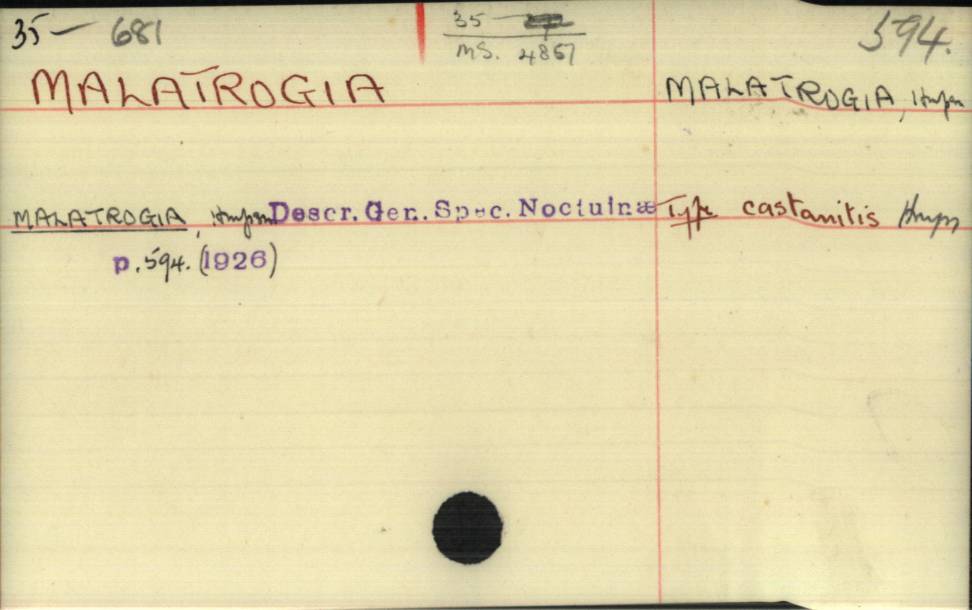 35 — 681
35 —
MS. 4867
594.
MALATROGIA
MALATROGIA, Hmpsn
MALATROGIA, Hmpsn Descr. Gen. Spec. Noctuinæ
p. 594. (1926)
Type castanitis Hmpsn